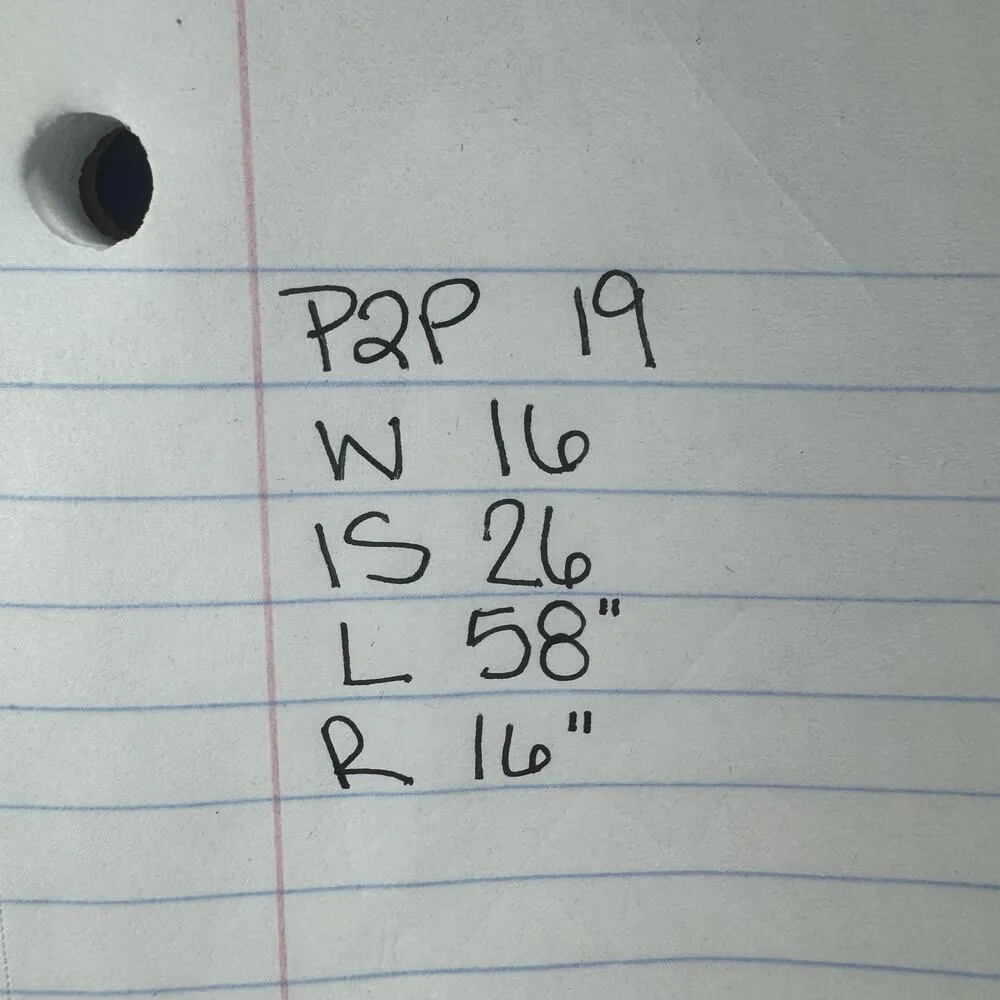 P2P 19
W 16
IS 26
L 58"
R 16"